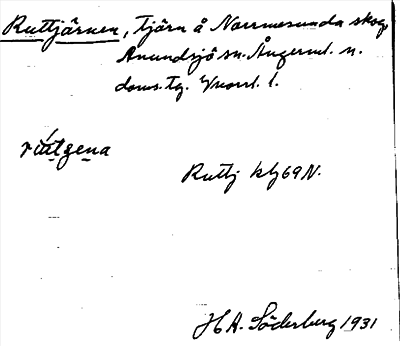 Ruttjärnen, tjärn å Norrmesunda skog,
Anundsjö sn. Ångerml. n.
doms. tg. Vnorrl. l.
rútgena
Ruttj kbl 69 N.
H A. Söderberg 1931